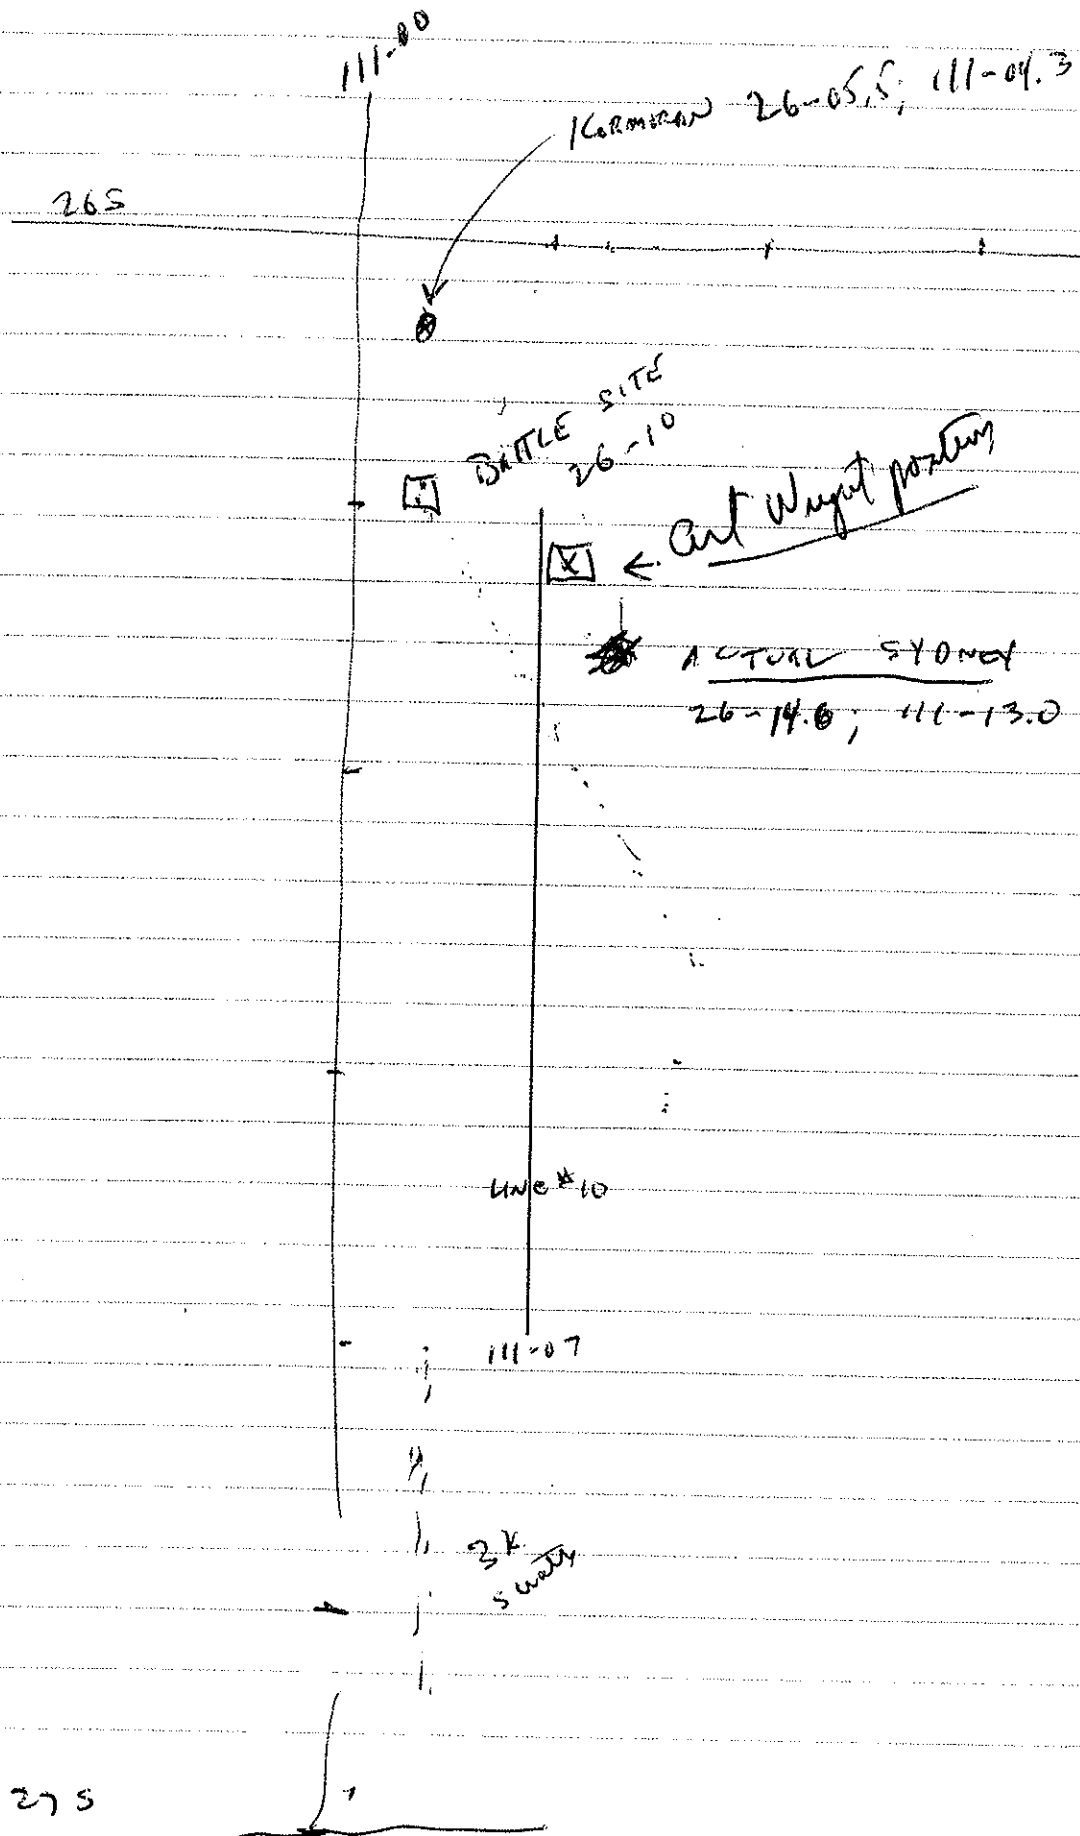 111-00
KORMORAN 26-05.5; 111-04.3
26S
BATTLE SITE
26-10
← position
ACTUAL SYDNEY
26-14.6; 111-13.0
LINE #10
111-07
3K
swath
27S